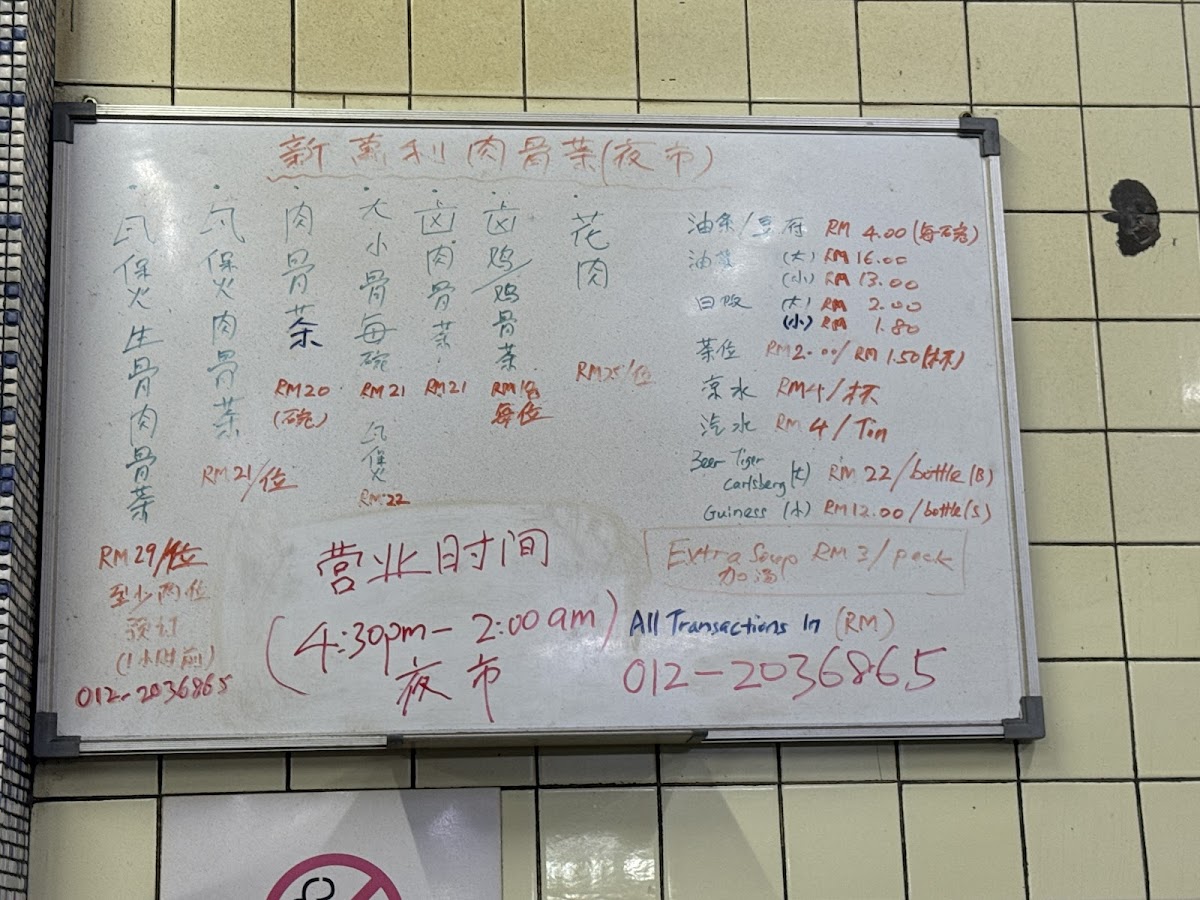 新萬利肉骨茶(夜市)
·瓦保火生骨肉骨茶
RM29/位
至少两位
预订
(1小时前)
012-2036865
·瓦保火肉骨茶
RM21/位
·肉骨茶
RM20
(碗)
·大小骨每碗
RM21
瓦煲
RM22
·卤肉骨茶
RM21
·卤鸡/鸡骨茶
每位
·花肉
RM25/位
油条/豆府 RM 4.00(每碗)
油菜 (大) RM 16.00
(小) RM 13.00
白饭 (大) RM 2.00
(小) RM 1.80
茶位 RM2.00/RM 1.50(杯)
凉水 RM4/杯
汽水 RM 4/Tin
Beer Tiger
Carlsberg (大) RM 22/bottle(B)
Guiness (小) RM12.00/bottle(S)
Extra Soup RM 3/pack
加汤
营业时间
(4:30pm-2:00am)
夜市
All Transactions In (RM)
012-2036865